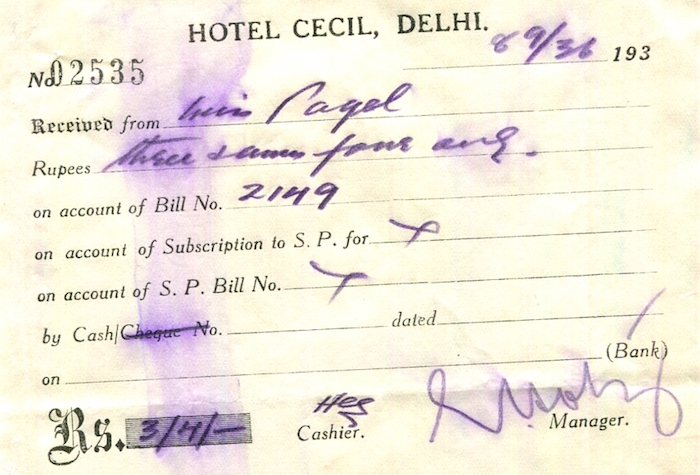 HOTEL CECIL, DELHI.
8 9/36 193
No 02535
Received from Miss Pagel
Rupees three & annas four only.
on account of Bill No. 2149
on account of Subscription to S. P. for x
on account of S. P. Bill No. x
by Cash/Cheque No. dated
on (Bank)
Rs. 3/4/-
Cashier. Manager.